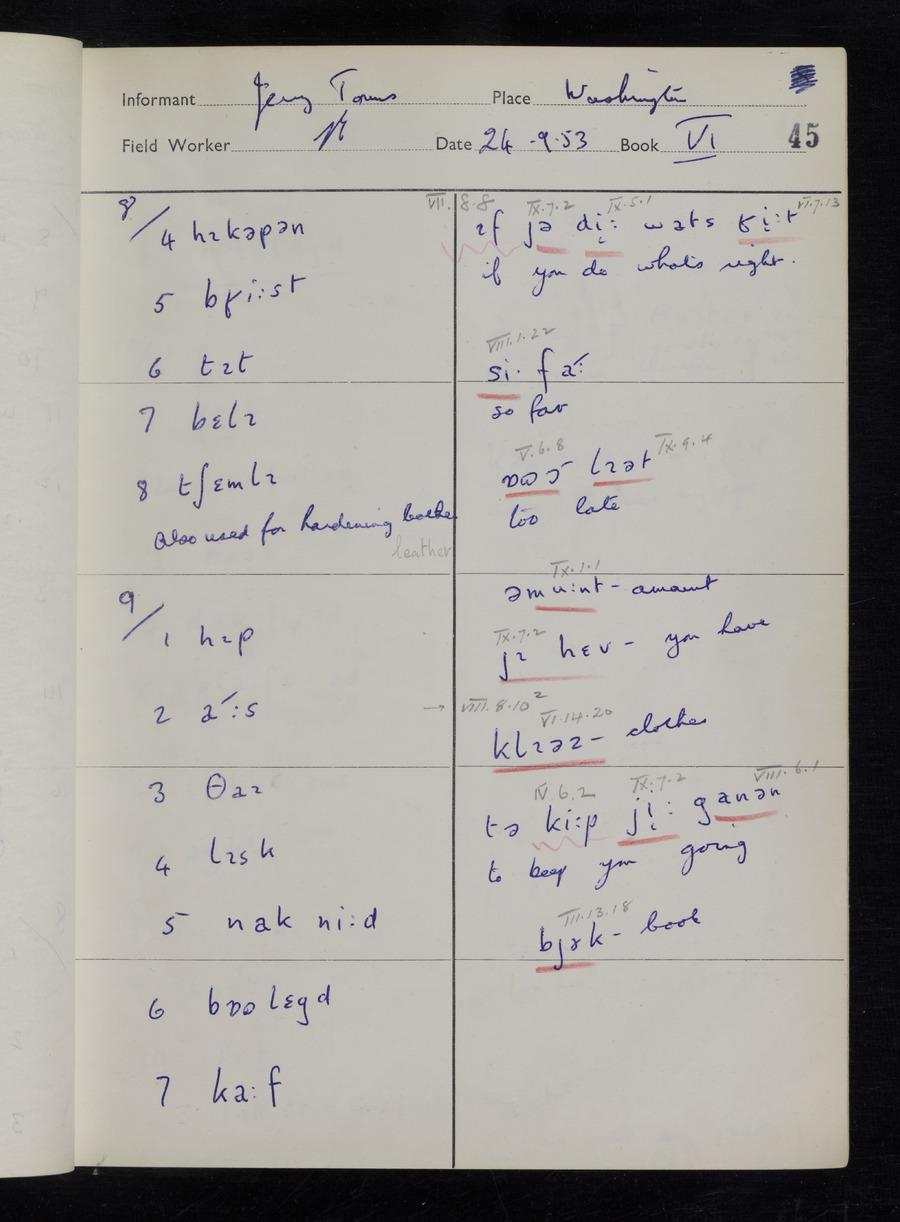 Informant Jerry Towns Place Washington
Field Worker Date 24-9-53 Book VI 45
8/
4 hɪkəpən
5 bʁi:st
6 tɪt
7 bɛlɪ
8 tʃɛmlɪ
Also used for hardening
leather
9/
1 hɪp
2 a:s
3 θaɪ
4 lɪsk
5 nak ni:d
6 bɒʊlɛgd
7 ka:f
VII. 8.8 IX.7.2 IX.5.1 VI.7.13
ɪf jə di: wats ʁi:t
if you do what's right.
VIII.1.22
si· fa:
so far
V.6.8 IX.9.4
lɪət
too late
IX.1.1
əmu:nt - amount
IX.7.2
jɪ hɛv - you have
→ VIII.8.10 2
VI.14.20
klɪəz - clothes
IV.6.2 IX.7.2 VIII.6.1
tə ki:p ji: ganən
to keep you going
III.13.18
bjək - book